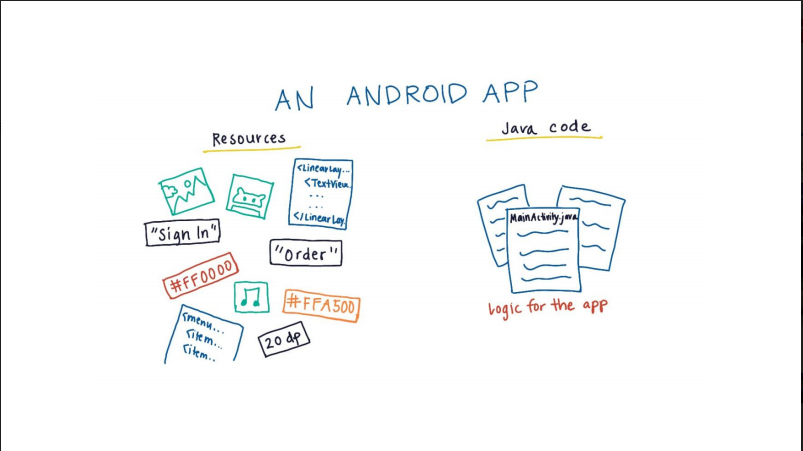 AN ANDROID APP
Resources
<LinearLay...
<TextView
...
...
</LinearLay.
"Sign In"
"Order"
#FF0000
#FFA500
<menu...
<item...
<item..
20 dp
Java code
MainActivity.java
Logic for the app